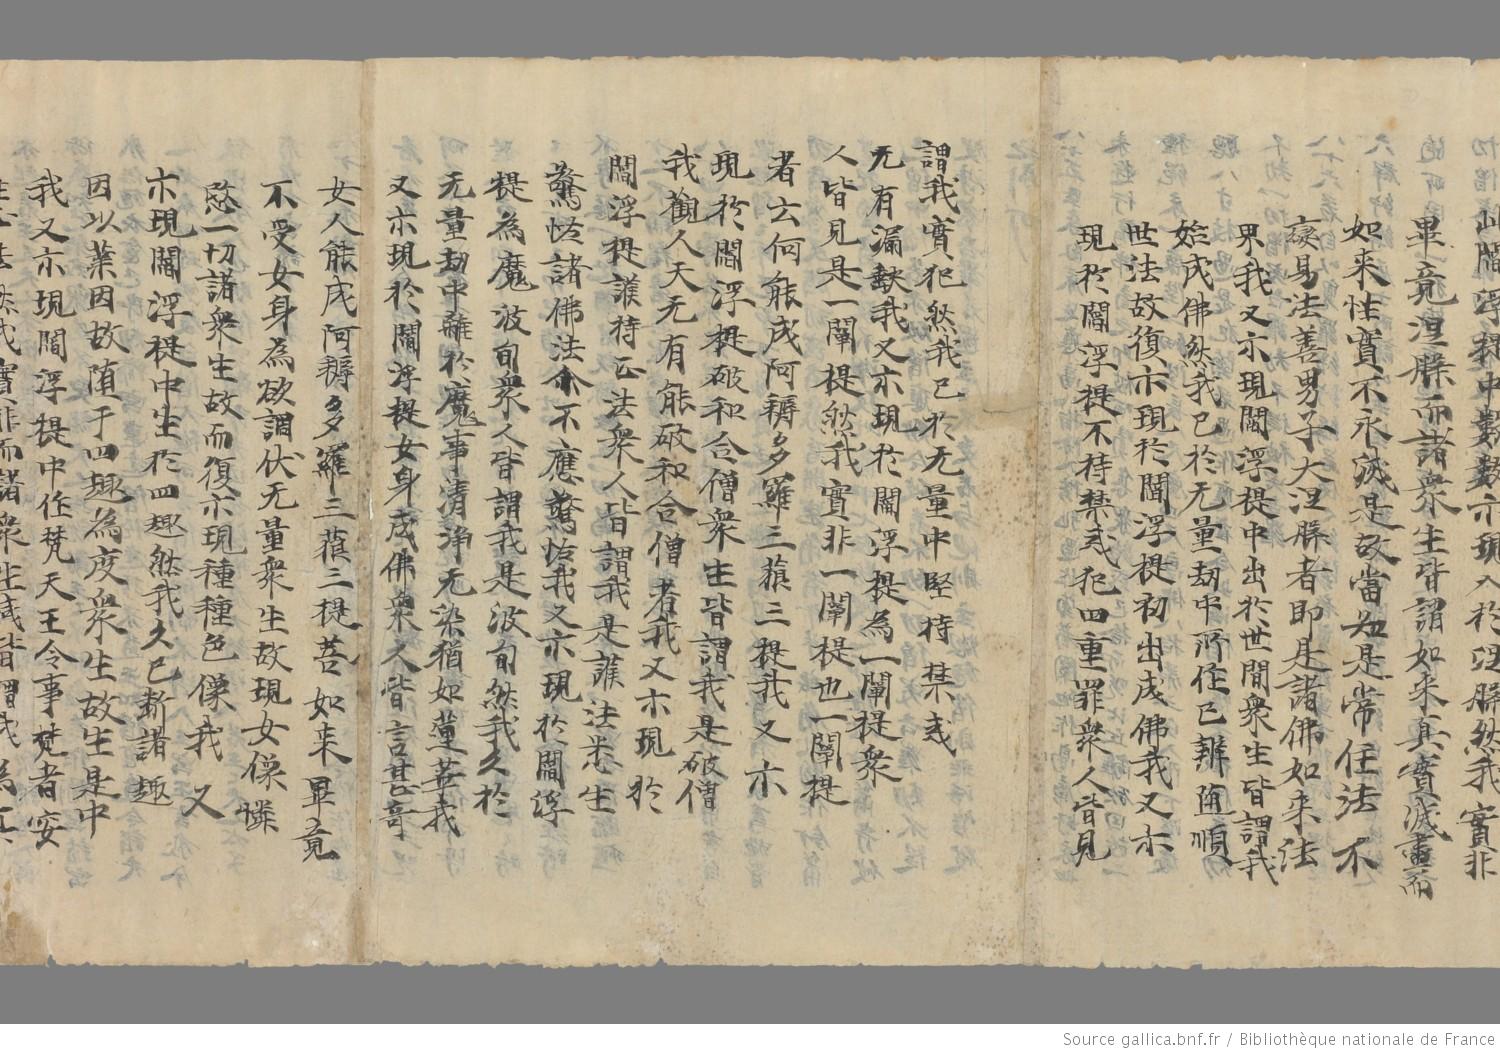 此閻浮提中數數示現入於涅槃然我實非
畢竟涅槃而諸衆生皆謂如來真實滅盡而
如來性實不永滅是故當知是常住法不
變易法善男子大涅槃者即是諸佛如來法
界我又示現閻浮提中出於世間衆生皆謂我
始成佛然我已於无量劫中所作已辦隨順
世法故復示現於閻浮提初出成佛我又示
現於閻浮提不持禁戒犯四重罪衆人皆見
謂我實犯然我已於无量中堅持禁戒
无有漏缺我又示現於閻浮提為一闡提衆
人皆見是一闡提然我實非一闡提也一闡提
者云何能成阿耨多羅三藐三提我又示
現於閻浮提破和合僧衆生皆謂我是破僧
我觀人天无有能破和合僧者我又示現於
閻浮提護持正法衆人皆謂我是護法悉生
驚怪諸佛法尒不應驚怪我又示現於閻浮
提為魔波旬衆人皆謂我是波旬然我久於
无量劫中離於魔事清淨无染猶如蓮華我
又示現於閻浮提女身成佛衆人皆言甚奇
女人能成阿耨多羅三藐三提菩如来畢竟
不受女身為欲調伏无量衆生故現女像憐
愍一切諸衆生故而復示現種種色像我又
示現閻浮提中生於四趣然我久已斷諸趣
因以業因故堕于四趣為度衆生故生是中
我又示現閻浮提中任梵天王令事梵者安
法然我實非而諸衆生咸皆謂我為
Source gallica.bnf.fr / Bibliothèque nationale de France